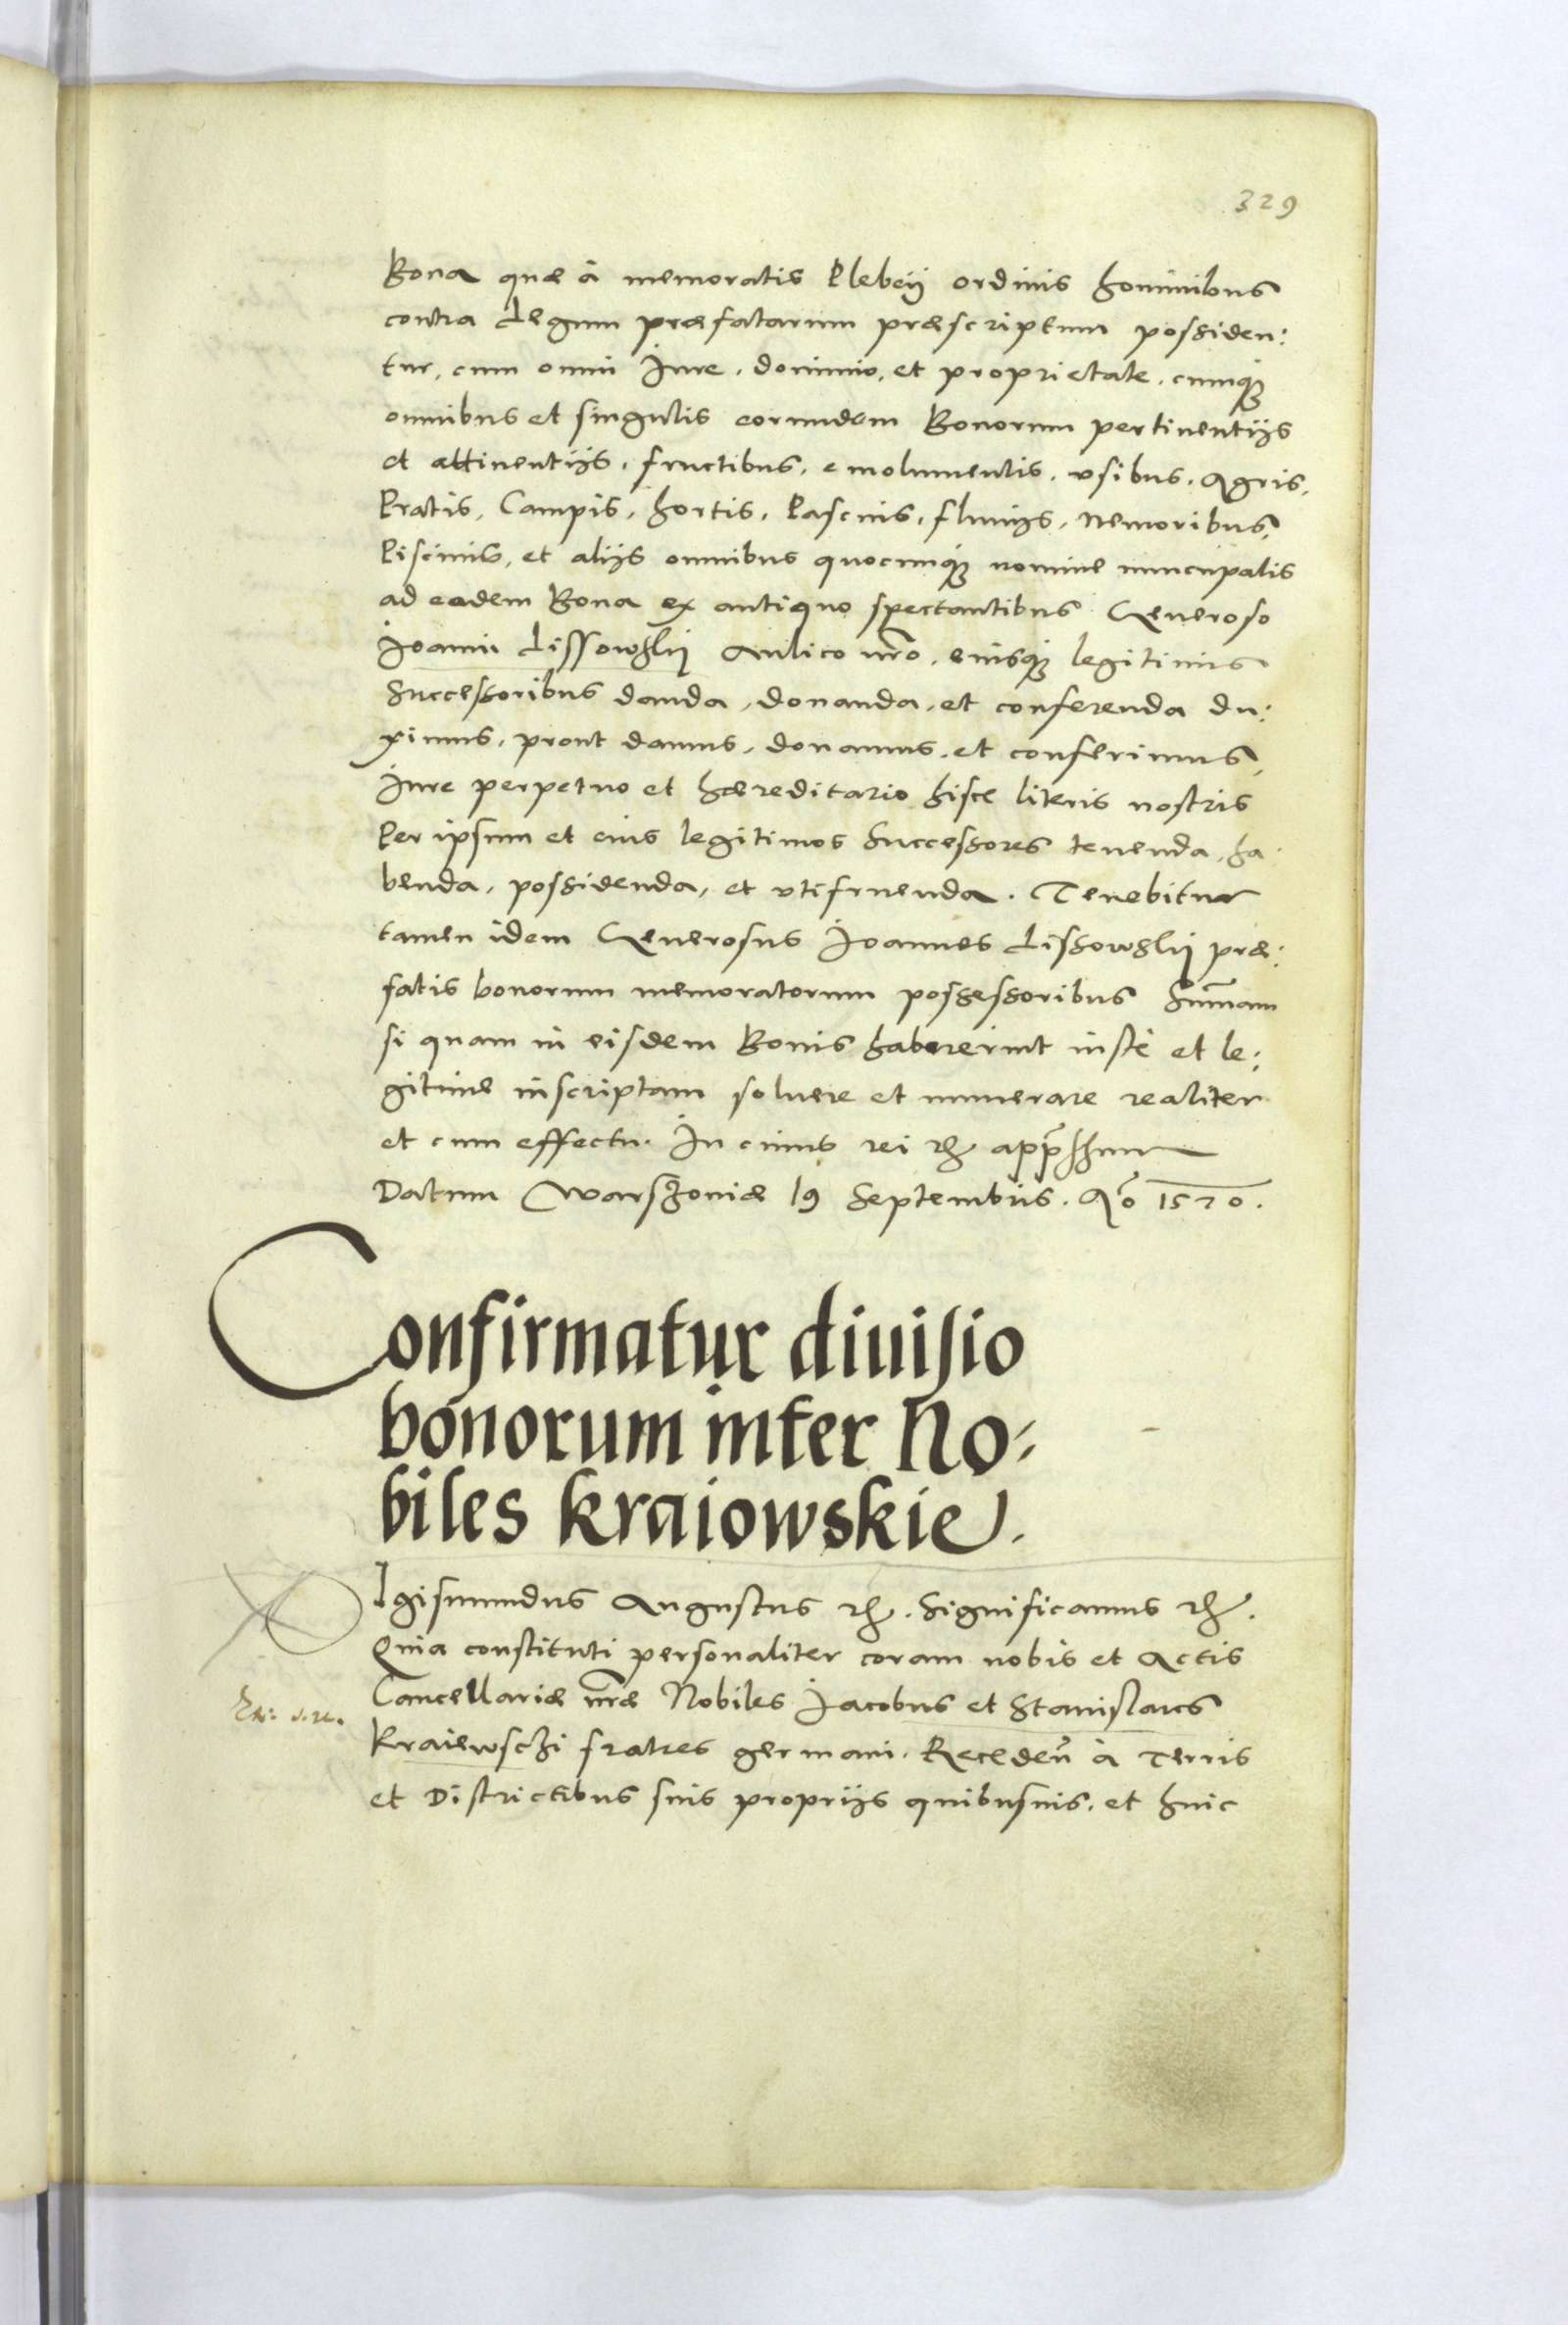 329
Bona quæ à memoratis Plebeij ordinis hominibus
contra Legum præfatarum præscriptum possiden:
tur, cum omni Iure, dominio, et proprietate, cumq
omnibus et singulis eorundem Bonorum pertinentijs
et attinentijs, fructibus, emolumentis, vsibus, Agris,
Pratis, Campis, hortis, Pascuis, fluuijs, Nemoribus,
Piscinis, et alijs omnibus quocunq nomine nuncupatis
ad eadem Bona ex antiquo spectantibus Generoso
Ioanni Lissowskij Aulico nro, eiusq legitimis
Successoribus danda, donanda, et conferenda du:
ximus, prout damus, donamus, et conferimus,
Iure perpetuo et hæreditario hisce literis nostris
Per ipsum et eius legitimos Successores tenenda, ha:
benda, possidenda, et vtifruenda. Tenebitur
tamen idem Generosus Ioannes Lissowskij præ:
fatis bonorum memoratorum possessoribus Sum̄am
si quam in eisdem Bonis habererint iustè et le:
gitime inscriptam soluere et numerare realiter
et cum effectu. In cuius rei rh appn̄shum
Datum Warschouiæ 19 Septembris. Aō 1570.
Confirmatur diuisio
bonorum inter No:
biles Kraiowskie.
Igismundus Augustus rh. Significamus rh.
Quia constituti personaliter coram nobis et Actis
Cancellariæ nræ Nobiles Iacobus et Stanislaus
Kraiewschi fratres germani. Receden̄ à Terris
et Districtibus suis proprijs quibusuis, et huic